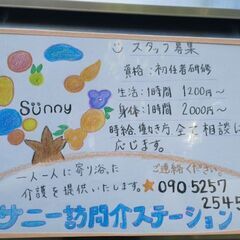 ☺ スタッフ募集
資格：初任者研修
生活：1時間 1200円〜
身体：1時間 2000円〜
時給、働き方 全て相談に
応じます。
Sunny
一人一人に寄り添った
介護を提供いたします。
ご連絡ください。
★090 5257
2545
サニー訪問介ステーション